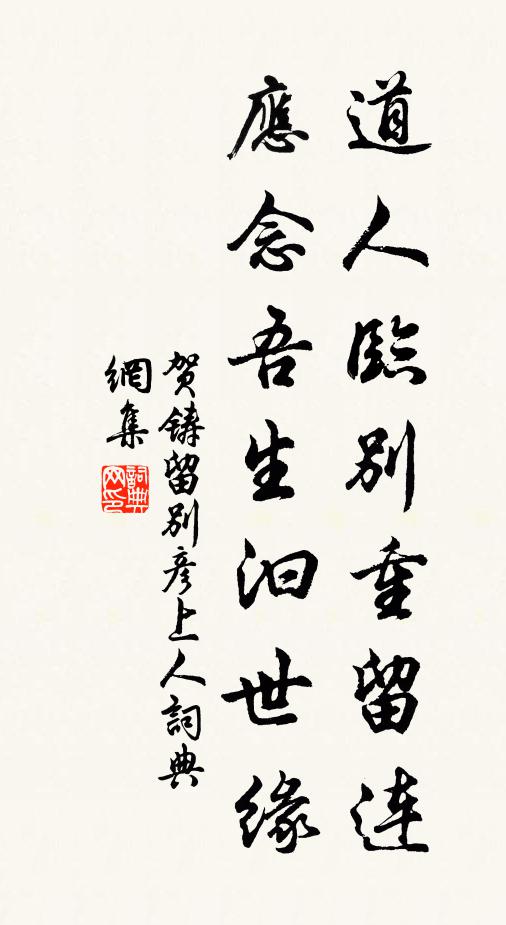 道人臨別重留連
應念吾生汩世緣
賀鑄留別彥上人詞典
網集
詞典網印